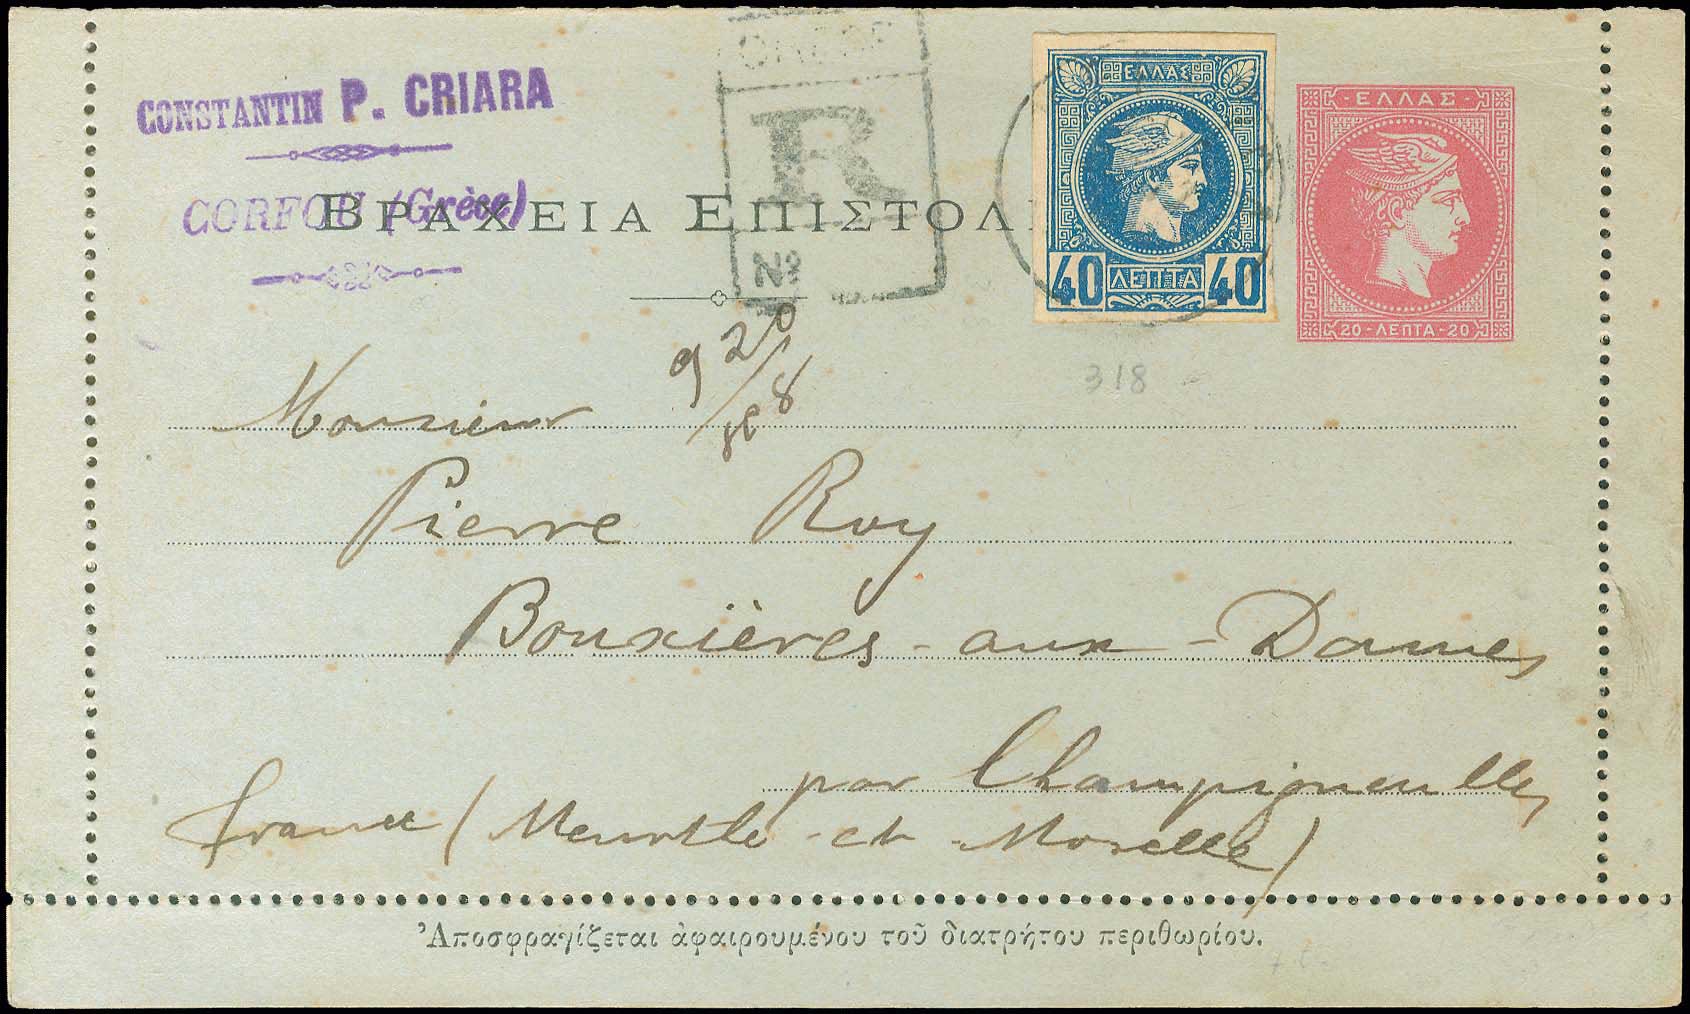 CONSTANTIN P. CRIARA
CORFOU (Grèce)
ΒΡΑΧΕΙΑ ΕΠΙΣΤΟΛ
R
Nº
ΕΛΛΑΣ
40 ΛΕΠΤΑ 40
ΕΛΛΑΣ
20 - ΛΕΠΤΑ - 20
318
Monsieur
Pierre Roy
Bouxières-aux-Dames
par Champigneulles
France (Meurthe-et-Moselle)
Ἀποσφραγίζεται ἀφαιρουμένου τοῦ διατρήτου περιθωρίου.